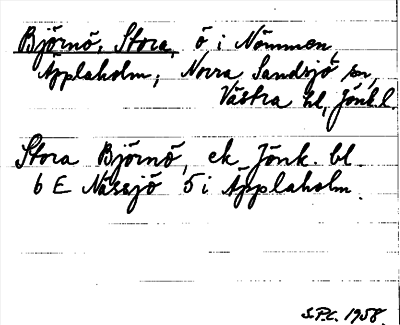 Björnö, Stora, ö i Nömmen,
Äpplaholm, Norra Sandsjö sn,
Västra hd, Jönk.l.
Stora Björnö, ek Jönk. bl.
6 E Nässjö 5 i Äpplaholm.
S.P.C. 1958.